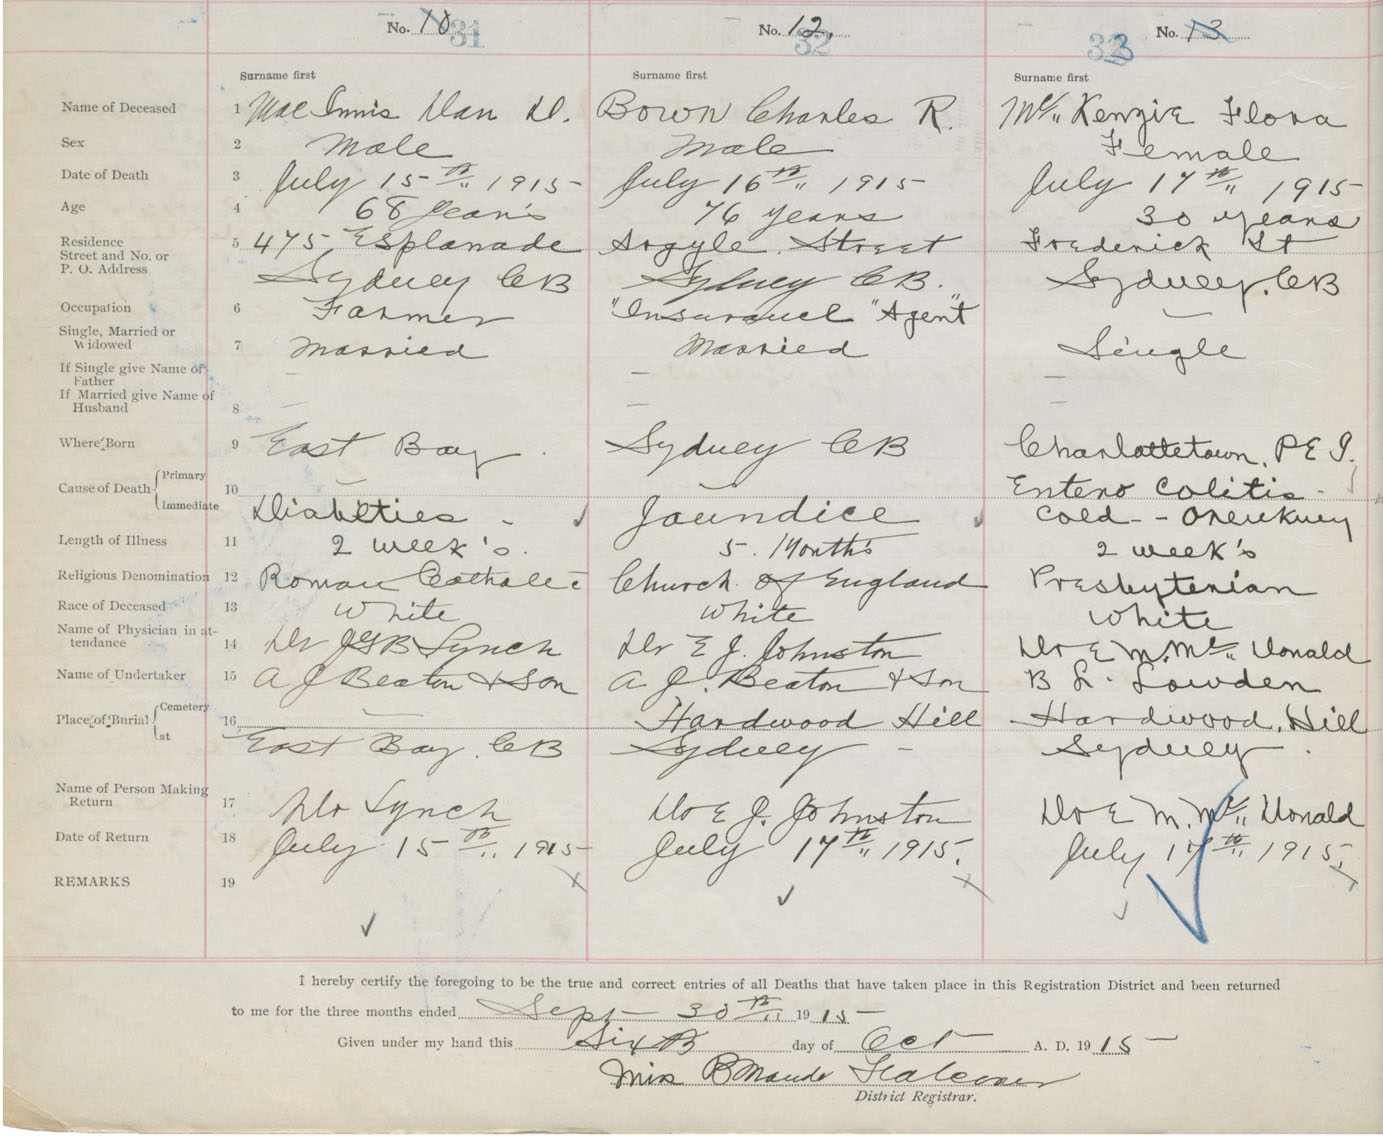 No. 10 31
No. 12. 32
No. 13 33
Surname first Surname first Surname first
Name of Deceased 1 MacInnis Dan D. Bown Charles R. Mc„ Kenzie Flora
Sex 2 Male Male Female
Date of Death 3 July 15th„ 1915 July 16th„ 1915 July 17th„ 1915
Age 4 68 Year's 76 years 30 years
Residence 5 475 Esplanade Argyle Street Frederick St
Street and No. or
P. O. Address Sydney CB Sydney CB. Sydney. CB
Occupation 6 Farmer "Insurance" "Agent" —
Single, Married or
Widowed 7 Married Married Single
If Single give Name of
Father – — —
If Married give Name of
Husband 8 – — –
Where Born 9 East Bay . Sydney CB Charlottetown. P E I.
Cause of Death { Primary 10 — — Entero Colitis -
Immediate Diabities - Jaundice Cold - -
Length of Illness 11 2 week's. 5. Months 2 week's
Religious Denomination 12 Roman Catholic Church of England Presbyterian
Race of Deceased 13 White White White
Name of Physician in at-
tendance 14 Dr JGB Lynch Dr E J. Johnston Dr E M. Mc„ Donald
Name of Undertaker 15 A J Beaton & Son A J. Beaton & Son B L. Lowden
Place of Burial { Cemetery 16 — Hardwood Hill Hardwood. Hill
at East Bay. CB Sydney - Sydney .
Name of Person Making
Return 17 Dr Lynch Dr E J. Johnston Dr E M. Mc„ Donald
Date of Return 18 July 15th„ 1915 July 17th„ 1915. July 17th„ 1915.
REMARKS 19
I hereby certify the foregoing to be the true and correct entries of all Deaths that have taken place in this Registration District and been returned
to me for the three months ended Sept 30th„ 1915
Given under my hand this Sixth day of Oct A. D. 1915
Miss B Maude Falconer
District Registrar.